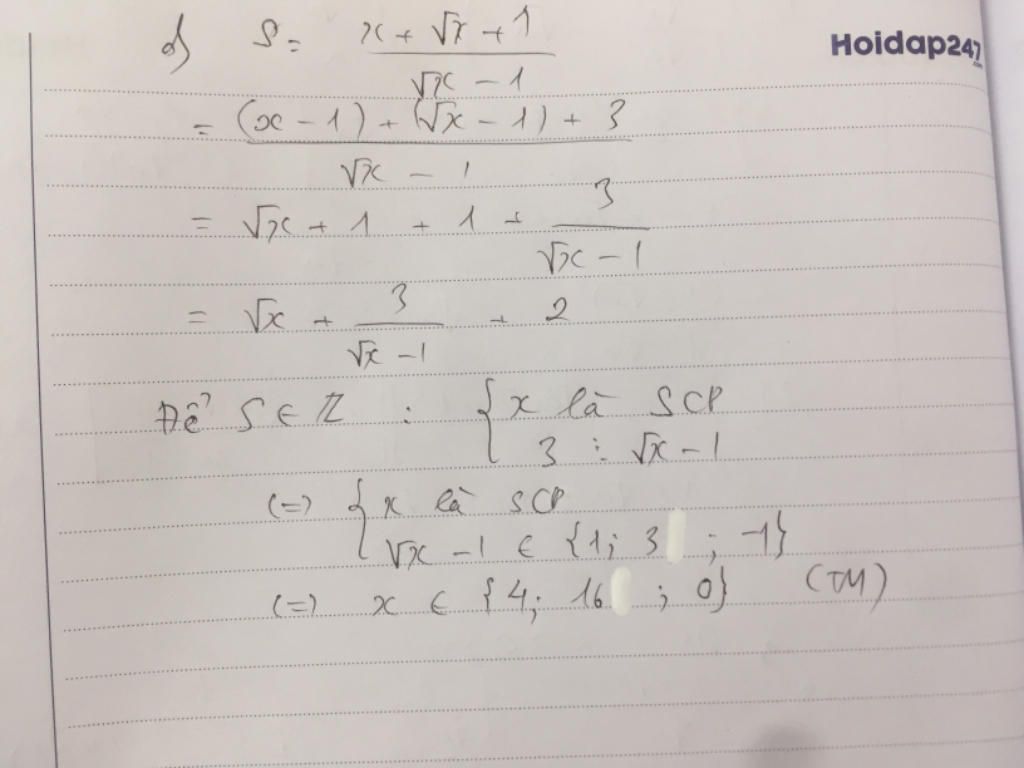 d) S = \frac{x + √x + 1}{√x - 1}
Hoidap247.com
= \frac{(x - 1) + (√x - 1) + 3}{√x - 1}
= √x + 1 + 1 + \frac{3}{√x - 1}
= √x + \frac{3}{√x - 1} + 2
Để S ∈ Z : { x là SCP
3 ⋮ √x - 1
(=) { x là SCP
√x - 1 ∈ {1; 3 ; -1}
(=) x ∈ {4; 16 ; 0} (TM)